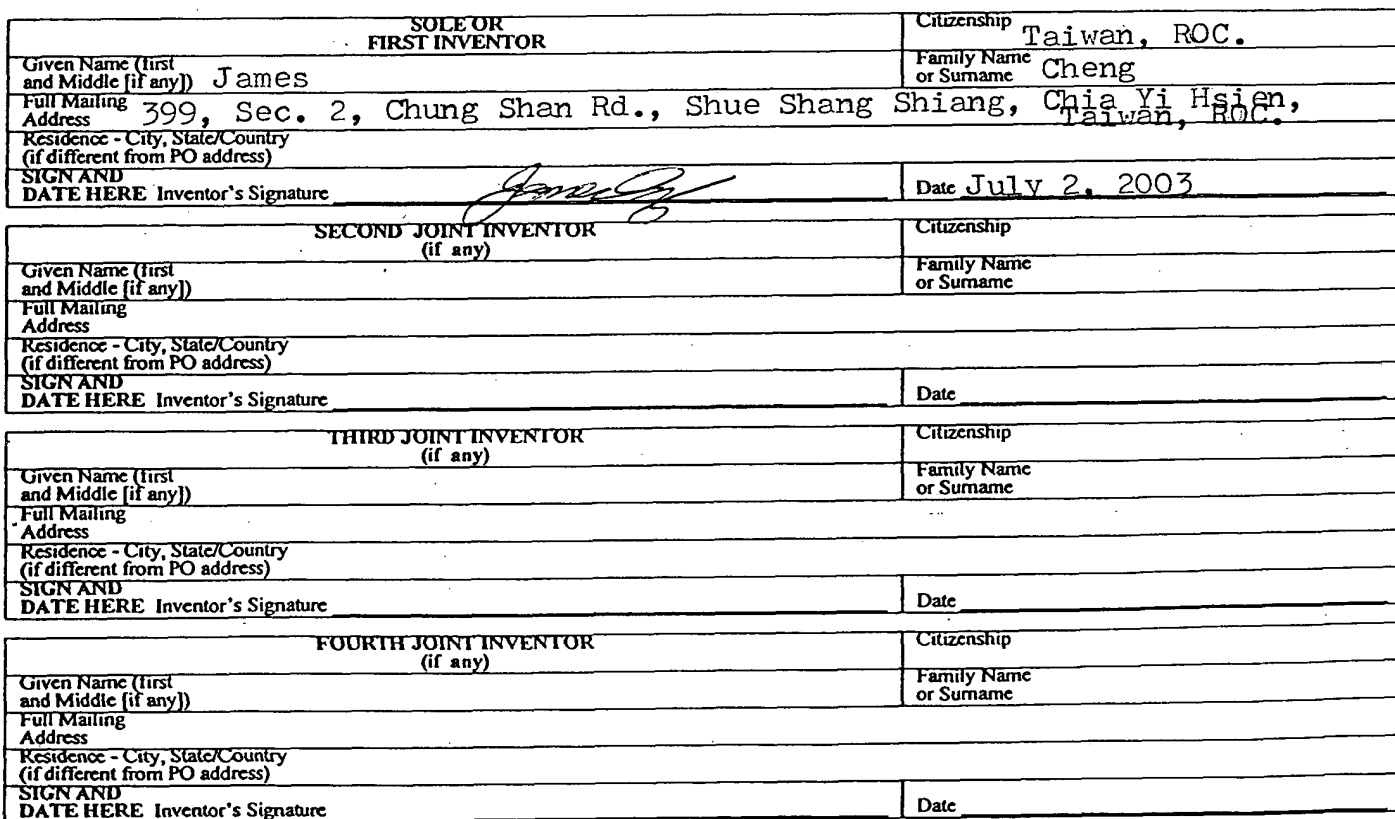 SOLE OR
FIRST INVENTOR
Citizenship Taiwan, ROC.
Given Name (first
and Middle [if any]) James
Family Name
or Surname Cheng
Full Mailing
Address 399, Sec. 2, Chung Shan Rd., Shue Shang Shiang, Chia Yi Hsien,
Taiwan, ROC.
Residence - City, State/Country
(if different from PO address)
SIGN AND
DATE HERE Inventor's Signature
Date July 2, 2003
SECOND JOINT INVENTOR
(if any)
Citizenship
Given Name (first
and Middle [if any])
Family Name
or Surname
Full Mailing
Address
Residence - City, State/Country
(if different from PO address)
SIGN AND
DATE HERE Inventor's Signature
Date
THIRD JOINT INVENTOR
(if any)
Citizenship
Given Name (first
and Middle [if any])
Family Name
or Surname
Full Mailing
Address
Residence - City, State/Country
(if different from PO address)
SIGN AND
DATE HERE Inventor's Signature
Date
FOURTH JOINT INVENTOR
(if any)
Citizenship
Given Name (first
and Middle [if any])
Family Name
or Surname
Full Mailing
Address
Residence - City, State/Country
(if different from PO address)
SIGN AND
DATE HERE Inventor's Signature
Date